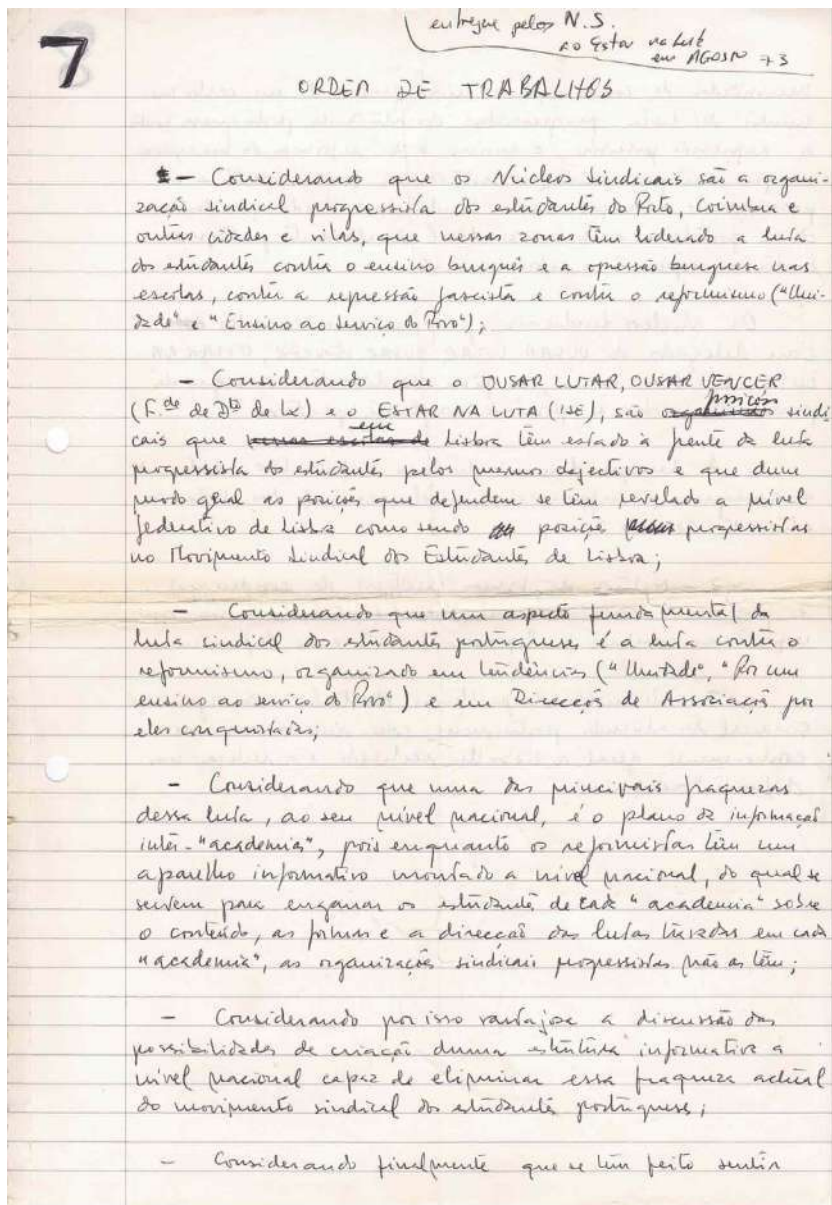 entregue pelos N.S.
ao Estar na Luta
em AGOSTO 73
7
ORDEM DE TRABALHOS
- Considerando que os Núcleos Sindicais são a organi-
zação sindical progressista dos estudantes do Porto, Coimbra e
outras cidades e vilas, que nessas zonas têm liderado a luta
dos estudantes contra o ensino burguês e a opressão burguesa nas
escolas, contra a repressão fascista e contra o reformismo ("Uni-
dade" e "Ensino ao serviço do Povo");
- Considerando que o OUSAR LUTAR, OUSAR VENCER
(F.de de Dto de Lx) e o ESTAR NA LUTA (ISE), são posições sindi
cais que em Lisboa têm estado à frente da luta
progressista dos estudantes pelos mesmos objectivos e que dum
modo geral as posições que defendem se têm revelado a nível
federativo de Lisboa como sendo posições progressistas
no Movimento Sindical dos Estudantes de Lisboa;
- Considerando que um aspecto fundamental da
luta sindical dos estudantes portugueses é a luta contra o
reformismo, organizado em tendências ("Unidade", "Por um
ensino ao serviço do Povo") e em Direcções de Associação por
eles conquistadas;
- Considerando que uma das principais fraquezas
dessa luta, ao seu nível nacional, é o plano da informação
inter-"academia", pois enquanto os reformistas têm um
aparelho informativo montado a nível nacional, do qual se
servem para enganar os estudantes de cada "academia" sobre
o conteúdo, as formas e a direcção das lutas travadas em cada
"academia", as organizações sindicais progressistas não as têm;
- Considerando por isso vantajosa a discussão das
possibilidades de criação duma estrutura informativa a
nível nacional capaz de eliminar essa fraqueza actual
do movimento sindical dos estudantes portugueses;
- Considerando finalmente que se têm feito sentir